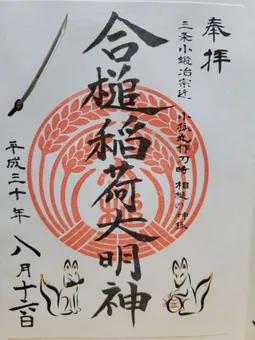 奉拝
三条小鍛冶宗近
小狐丸作刀時 相槌の神様
合槌稲荷大明神
平成三十年
八月十六日